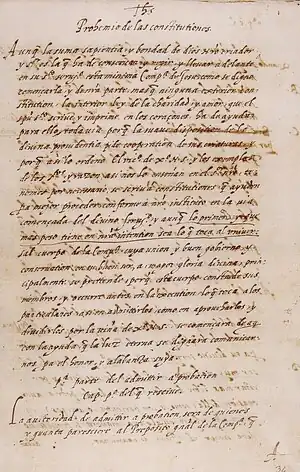 Ihs
Prohemio de las constitutiones.
Aunq̃ la suma sapientia y bondad de dios nr̃o criador
y sr̃. es la q̃ ha de conseruar y regir y lleuar adelante
en su sto. seruiº. esta minima Compª. de Jesus como se digno
començarla y de nra parte mas q̃ ninguna exterior con-
stitution, la interior ley de la charidad y amor que el
spū sto. escriue y imprime en los coraçones ha de ayudar
para ello, todauia porq̃ la suaue disposition de la
diuina prouidentia pide cooperation de sus criaturas, y
porq̃ assi lo ordeno el vicº. de xº. nr̃o sr̃. y los exemplos
de los stos. y razon assi nos lo enseñan en el sr̃. nr̃o. te-
nemos por necessario se scriuan constitutiones q̃ ayuden
para mejor proceder conforme a nr̃o instituto en la via
començada del diuino seruiº. y aunq̃ lo
mas peso tiene en nr̃a intention sea lo q̃ toca al vniuer-
sal cuerpo de la Compª. cuya union y buen gouierno y
conseruation en su bien ser, a maior gloria diuina, prin-
cipalmente se pretende, porq̃ este cuerpo consta de sus
miembros, y occurre antes en la execution lo q̃ toca a los
particulares, assi en admitirlos como en aprouecharlos y
diuidirlos por la viña de xº. nr̃o sr̃. se començara de aq̃
con la ayuda q̃ la luz eterna se dignara comunicar-
nos, pa el honor y alabança suya.
1ª. parte del admitir a probation
Cap. pº. del q̃ rescibe.
La autoridad de admitir a probation, sera de quienes
y quanta paresciere al Preposito gñal de la Compª. q̃